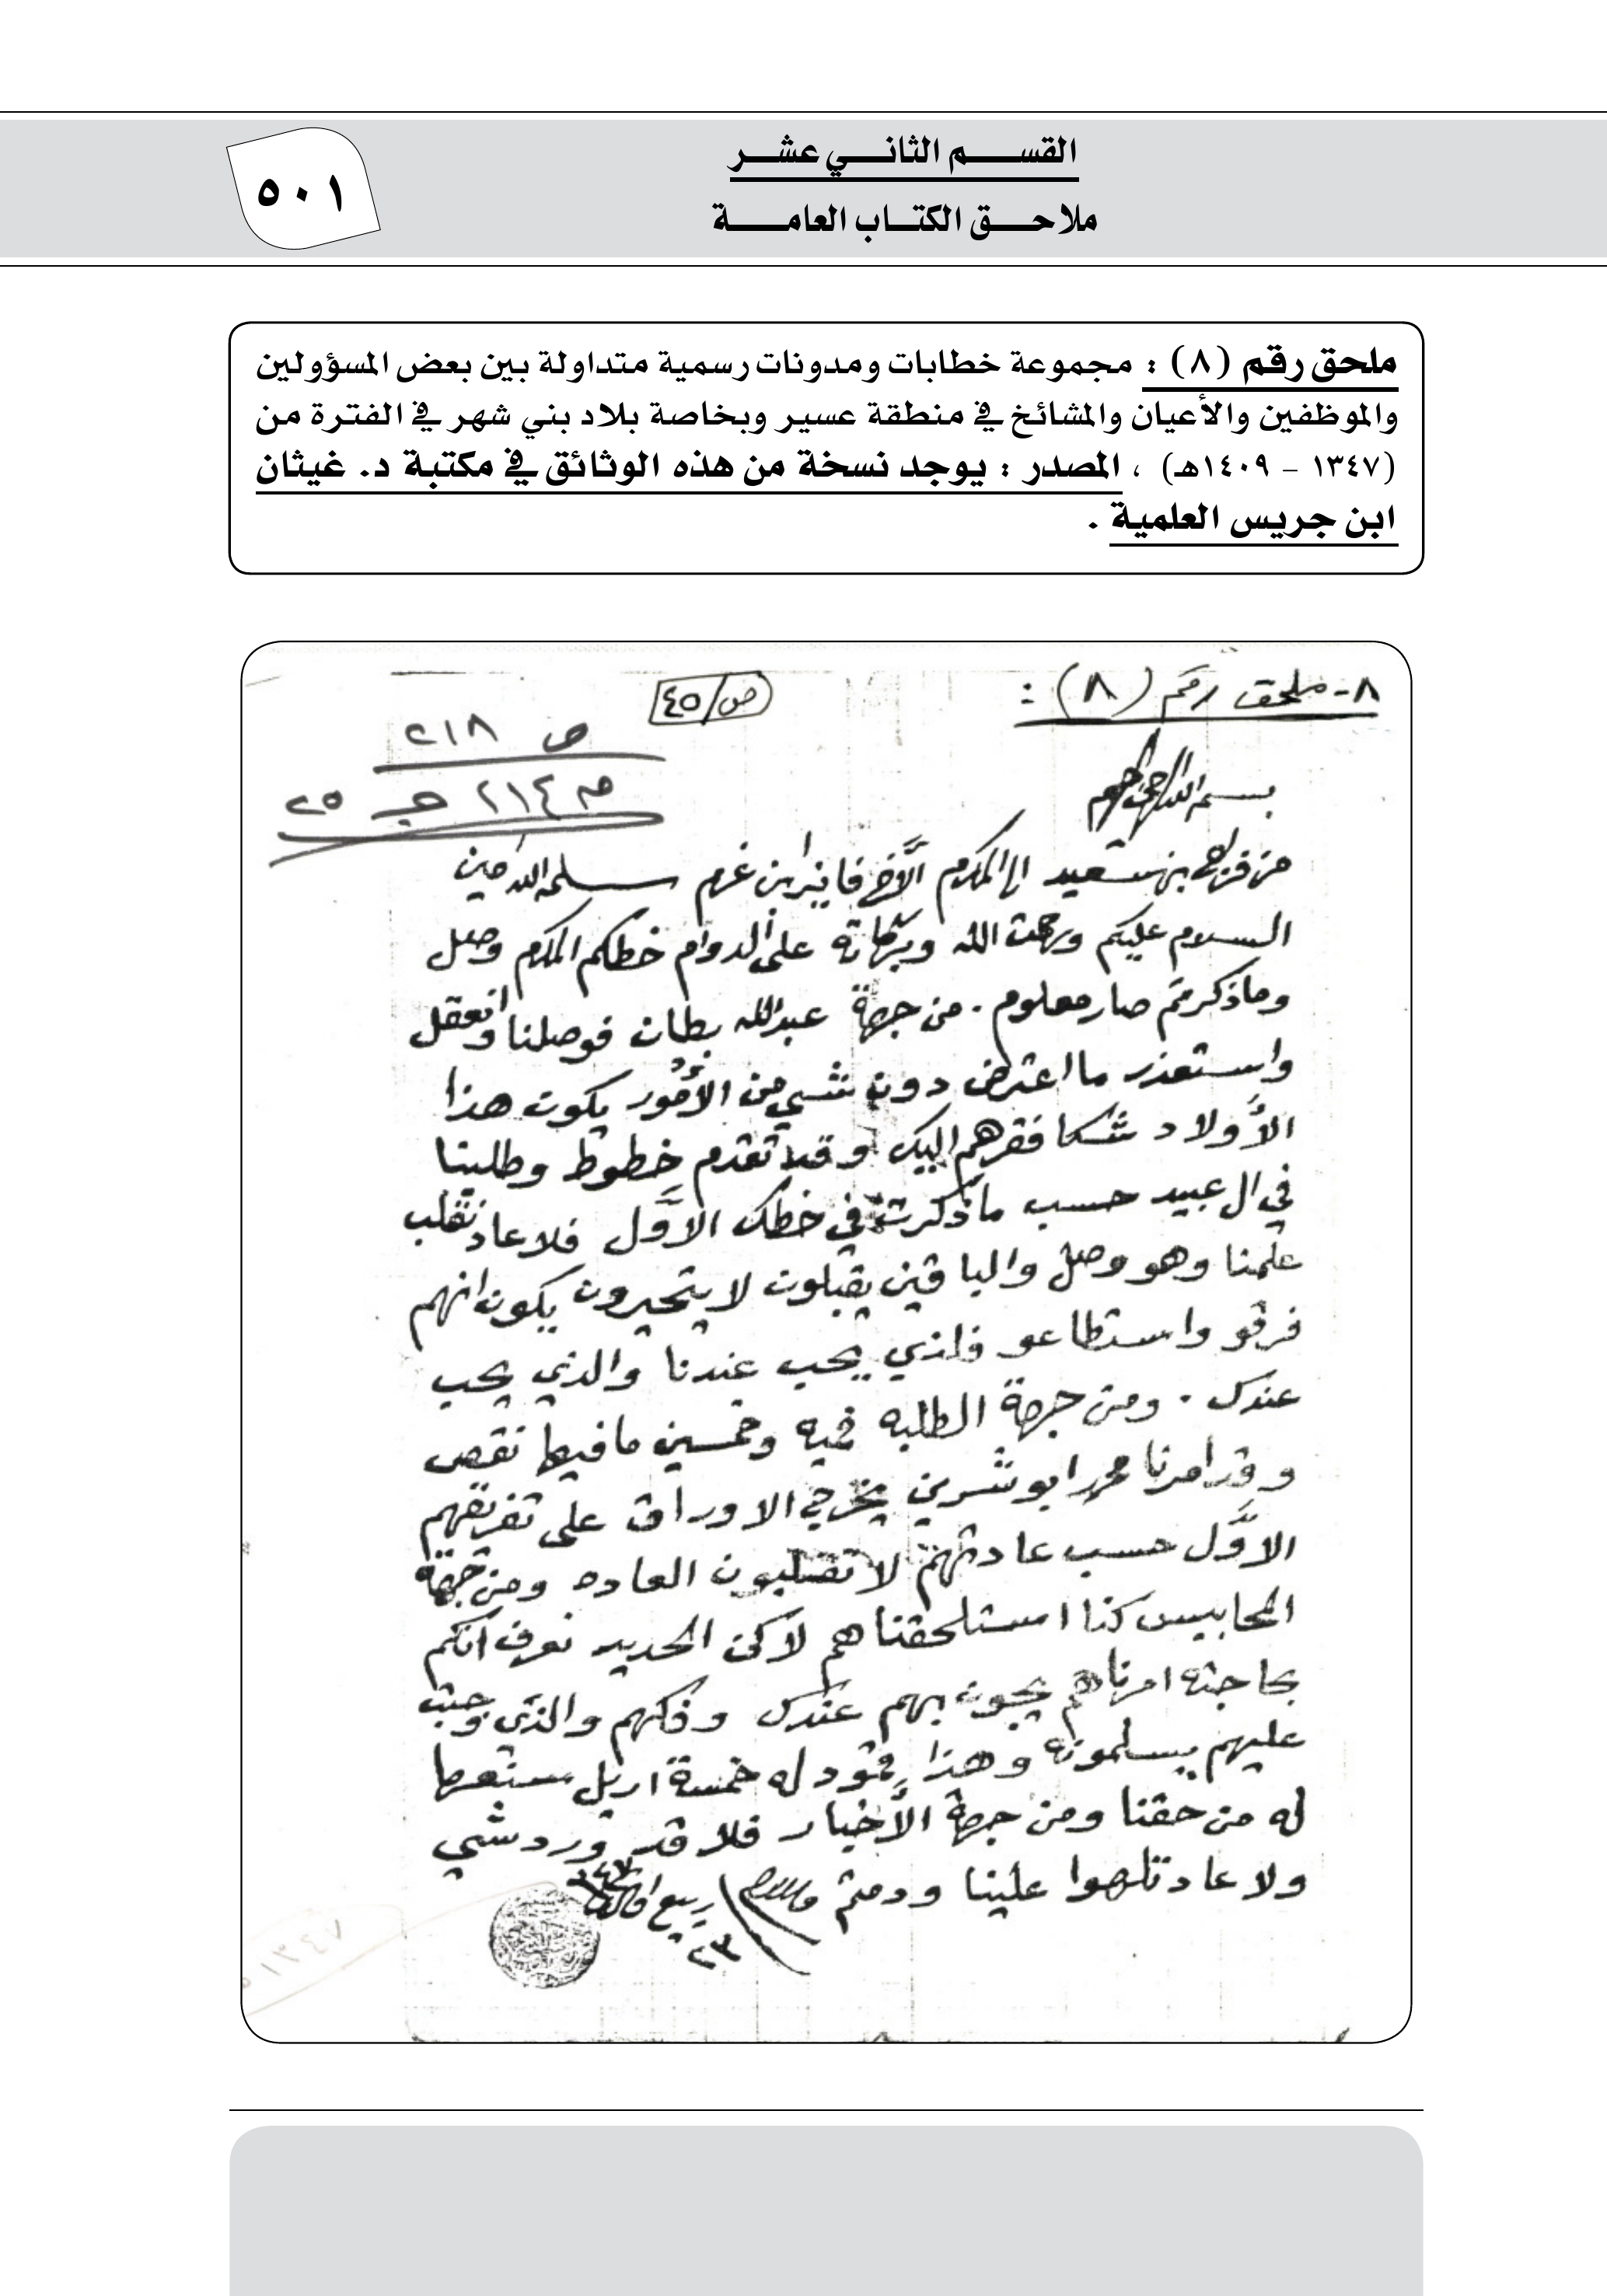 القســـم الثانـــي عشـــر
ملاحـــق الكتـــاب العامـــــة
٥٠١
ملحق رقم (٨) : مجموعة خطابات ومدونات رسمية متداولة بين بعض المسؤولين
والموظفين والأعيان والمشائخ في منطقة عسير وبخاصة بلاد بني شهر في الفترة من
(١٣٤٧ – ١٤٠٩هـ) ، المصدر : يوجد نسخة من هذه الوثائق في مكتبة د. غيثان
ابن جريس العلمية .
٨- ملحق رقم (٨) :
ص/٤٥
ص ٢١٨
م ٢١٤ جـ ٢٥
بسم الله الرحمن الرحيم
من فراج بن سعيد الى المكرم الأخ فايز ابن غرم سلمه الله امين
السلام عليكم ورحمت الله وبركاته على الدوام خطكم المكرم وصل
وماذكرتم صار معلوم . من جهة عبدالله بطان فوصلنا وانعقل
واستعذر ما اعترض دون شي من الأمور يكون هذا
الأولاد شكا فقرهم اليك وقد تقدم خطوط وطلبنا
في ال عبيد حسب ماذكرت في خطك الأول فلا عاد نقلب
علمنا وهو وصل والباقين يقبلون لا يتحيرون يكون انهم
فرقو واستطاعو فاذي يحب عندنا والذي يحب
عندك . ومن جهة الطلبه فيه وخمسين مافيها نقص
وقد امرنا محمد ابو شرين يخرجي الاوراق على تفريقهم
الأول حسب عادتهم لا تقلبون العاده ومن جهة
المحابيس كنا استلحقناهم لاكن الحديد نعرف انكم
بحاجته امرناهم يجون بهم عندك وفكهم والذي وجب
عليهم يسلمونه وهذا له خمسة اريل
له من حقنا ومن جهة الأخبار فلا قد ورد شي
ولا عاد تلهوا علينا ودمتم والسلام
٢٣ ربيع
١٣٤٧